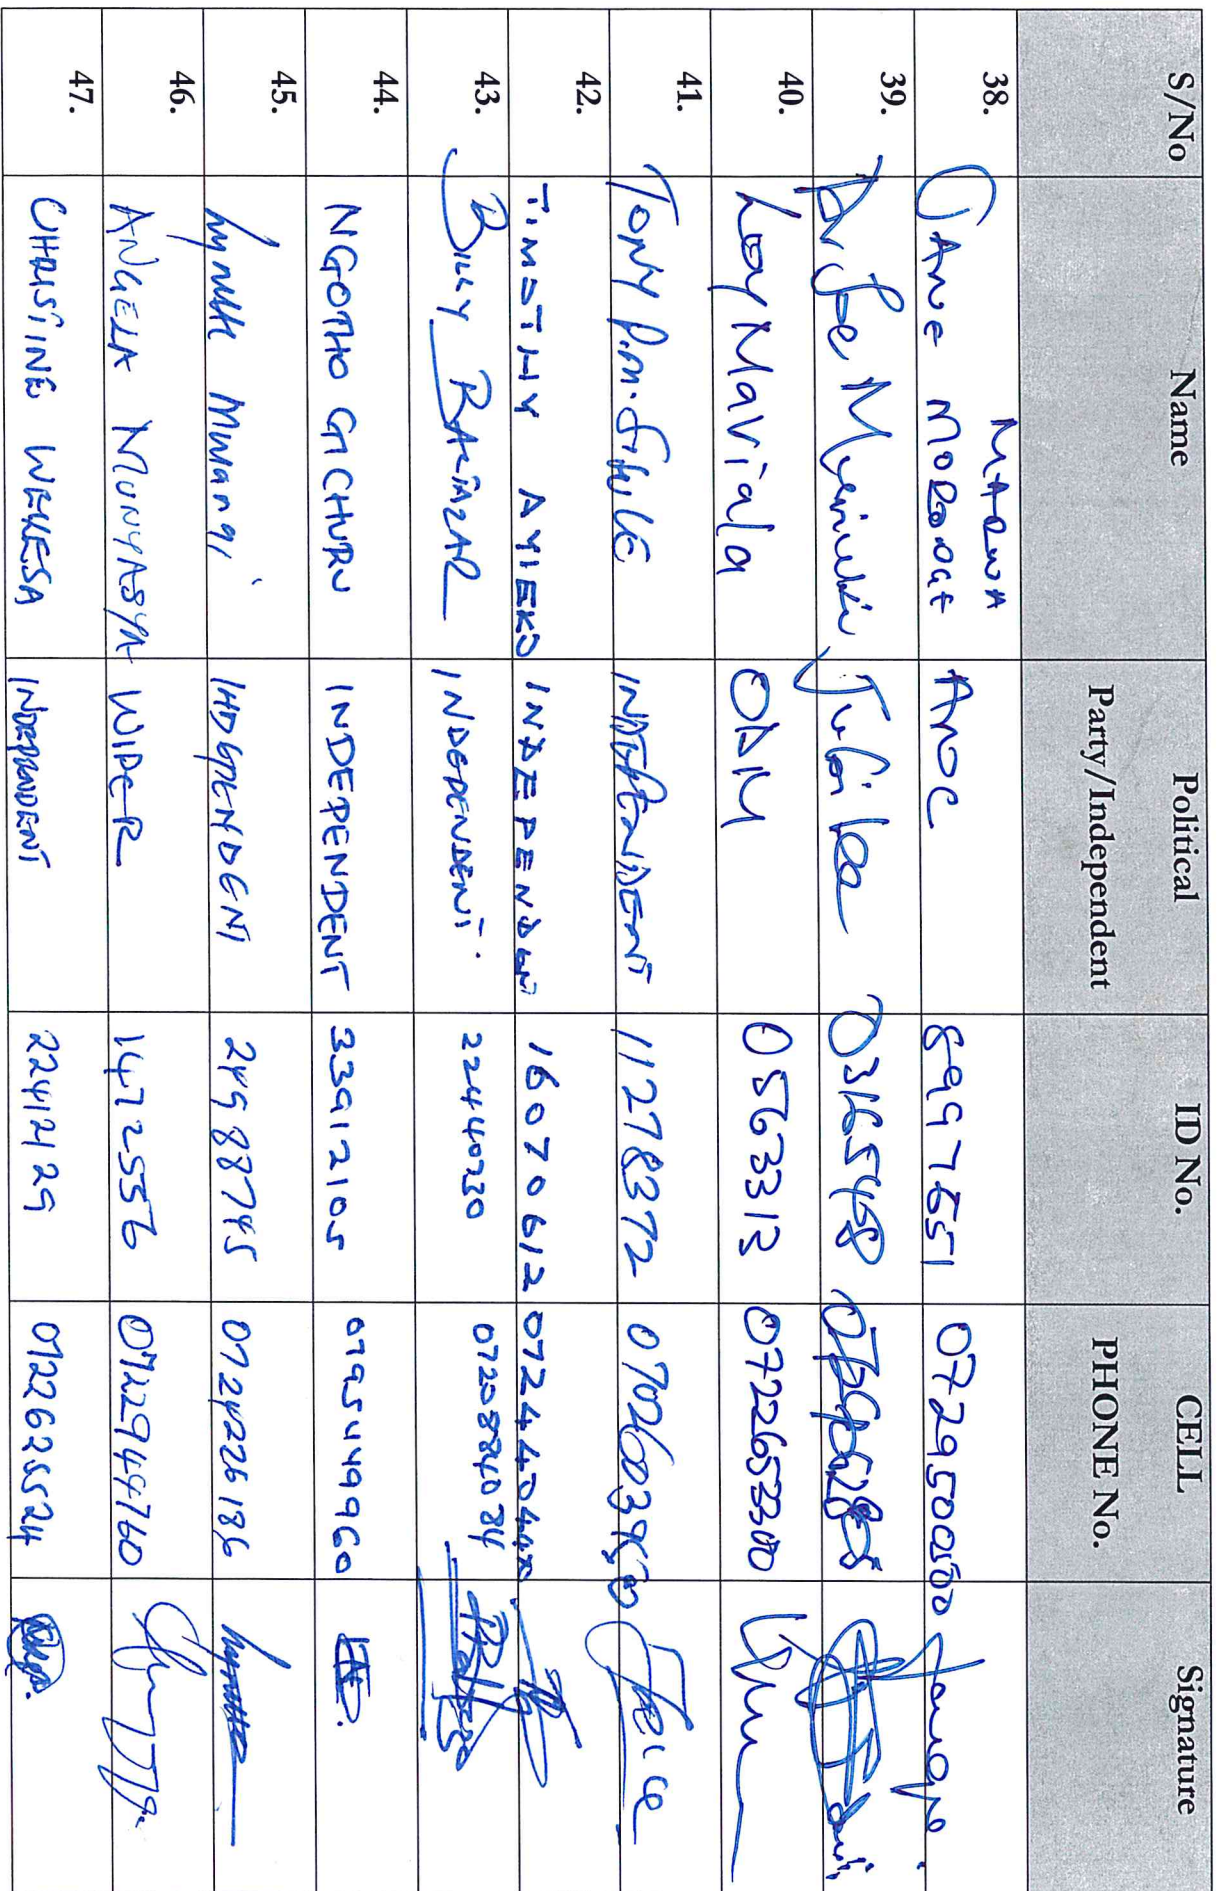 S/No Name Political Party/Independent ID No. CELL PHONE No. Signature
38. Jane Morogoe Marwa ANC 8997651 0729500500
39. Dr Joe Jubilee 03165458
40. Loy Mariala ODM 0563313 0722653300
41. Tony P.M. INDEPENDENT 11278372
42. TIMOTHY AYIEKO INDEPENDENT 16070612 0724404040
43. BILLY INDEPENDENT. 22440230 0720884084
44. NGOTHO GICHURU INDEPENDENT 33912105 0795449960
45. Lynette Mwangi INDEPENDENT 24988745 0724226186
46. ANGELA MUNYASYA WIPER 14722556 0722944760
47. CHRISTINE WEKESA INDEPENDENT 22412129 0722625524